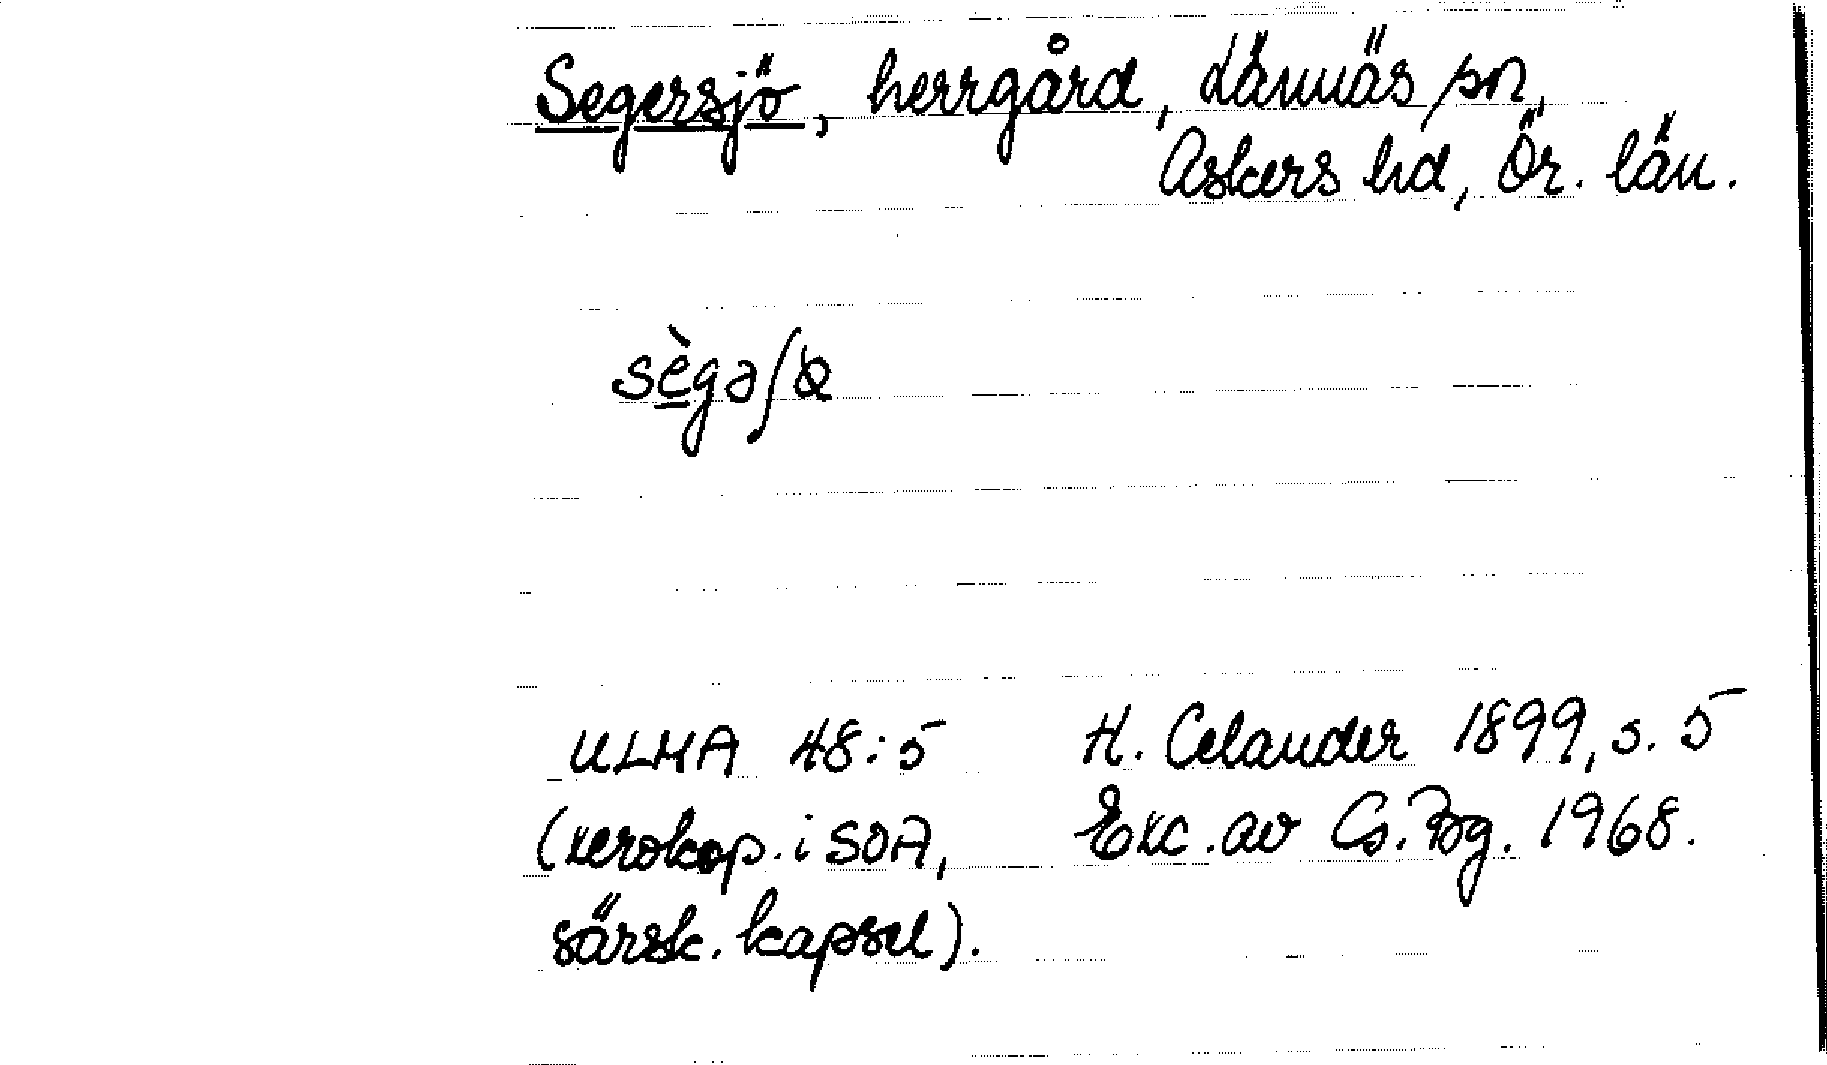 Segersjö, herrgård, Lännäs sn,
Askers hd, Ör. län.
sègəʃ
ULMA 48:5 H. Celander 1899, s. 5
(xerokop. i SOA, Exc. av Cs. Bg. 1968.
särsk. kapsel).